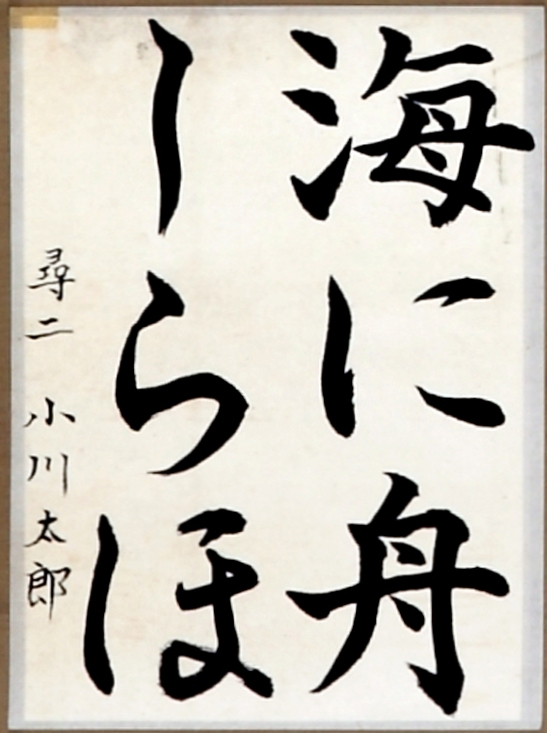 海に舟
しらほ
尋二 小川太郎